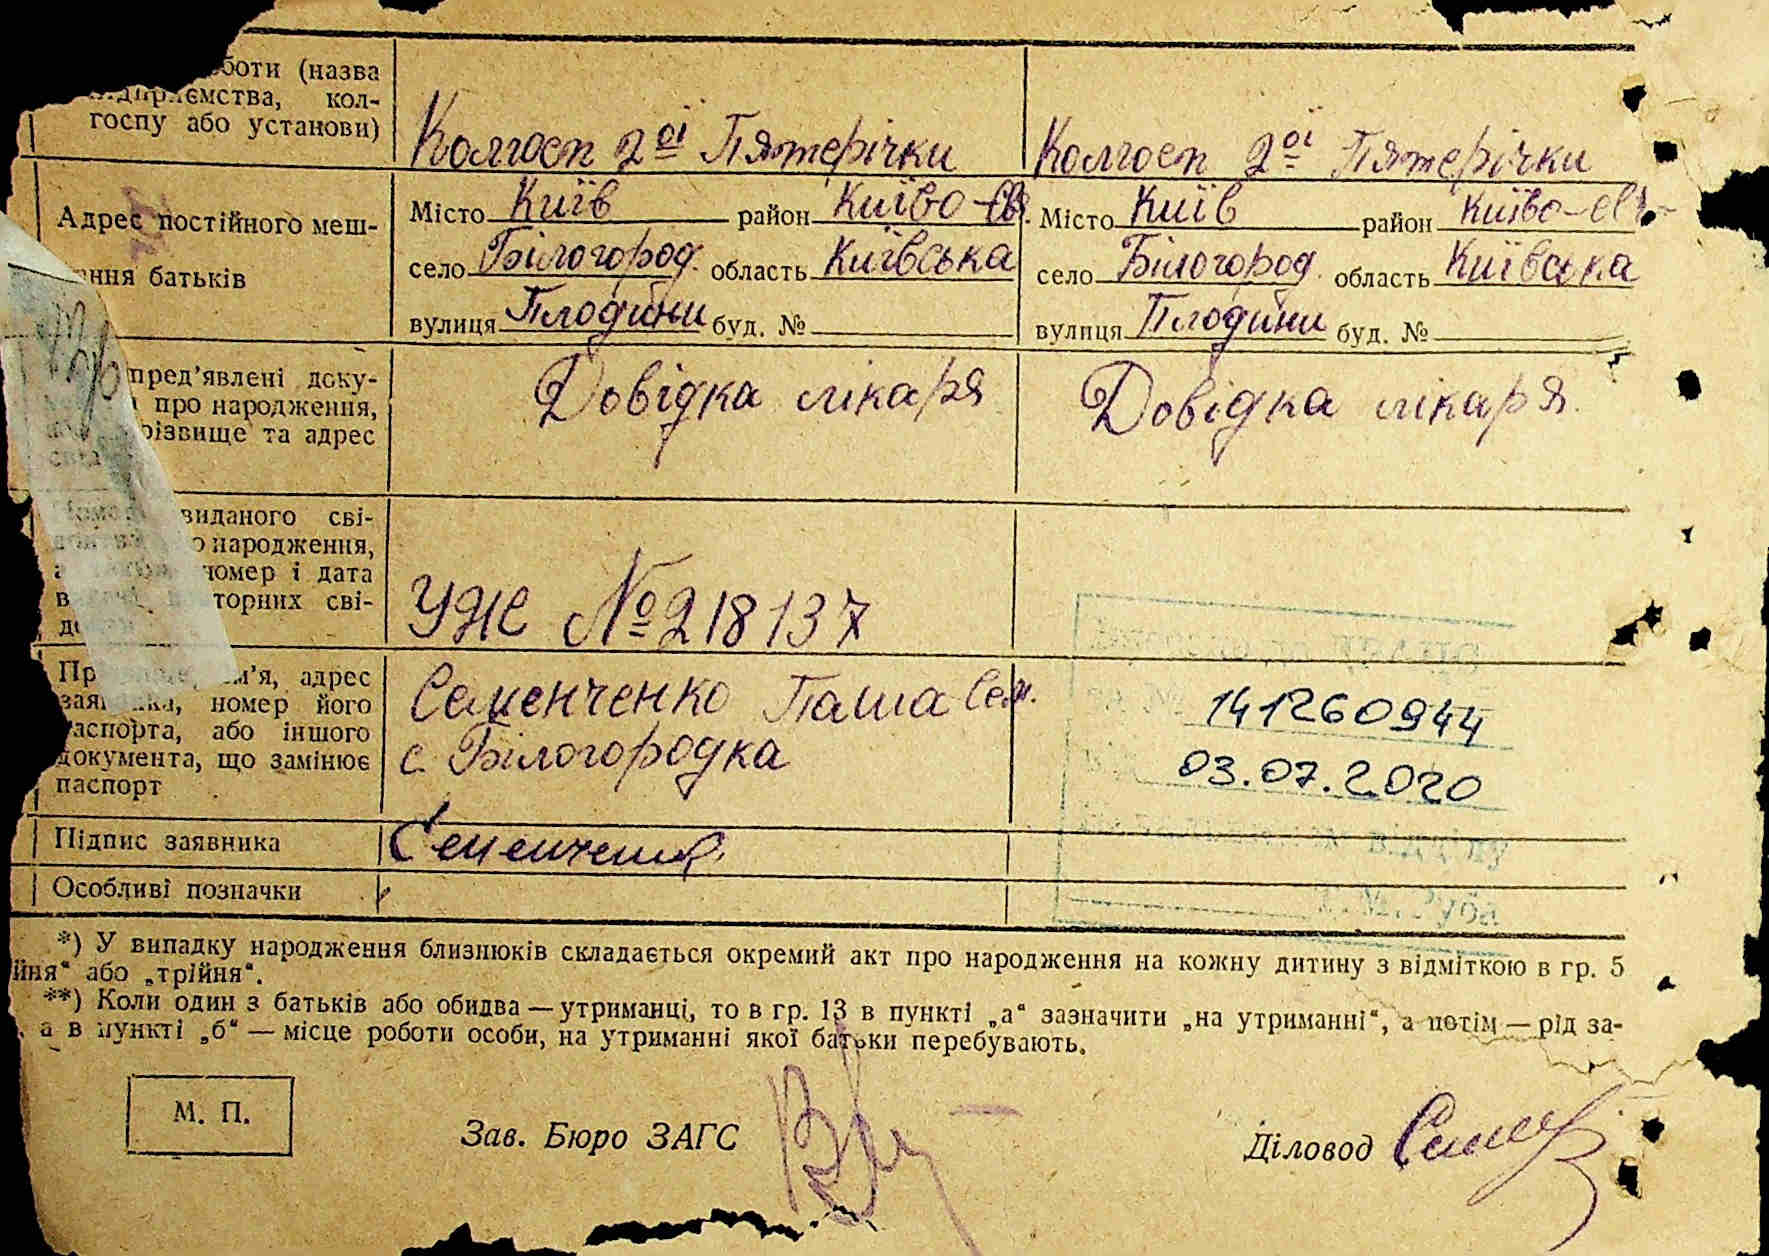 боти (назва
ємства, кол-
госпу або установи)
Колгосп 2ої Пятерічки
Колгосп 2ої Пятерічки
Адрес постійного меш-
ння батьків
Місто Київ район Київо-Св.
село Білогород. область Київська
вулиця буд. №
Місто Київ район Київо-
село Білогород. область Київська
вулиця буд. №
пред’явлені доку-
про народження,
різвище та адрес
Довідка лікаря
Довідка лікаря
виданого сві-
о народження,
номер і дата
торних сві-
УЖЕ №218137
м’я, адрес
номер його
паспорта, або іншого
документа, що замінює
паспорт
Семенченко Паша Сем.
с. Білогородка
141260944
03.07.2020
Підпис заявника
Семенченко
Особливі позначки
*) У випадку народження близнюків складається окремий акт про народження на кожну дитину з відміткою в гр. 5
йня“ або „трійня“.
**) Коли один з батьків або обидва — утриманці, то в гр. 13 в пункті „а“ зазначити „на утриманні“, а потім — рід за-
а в пункті „б“ — місце роботи особи, на утриманні якої батьки перебувають.
М. П.
Зав. Бюро ЗАГС
Діловод